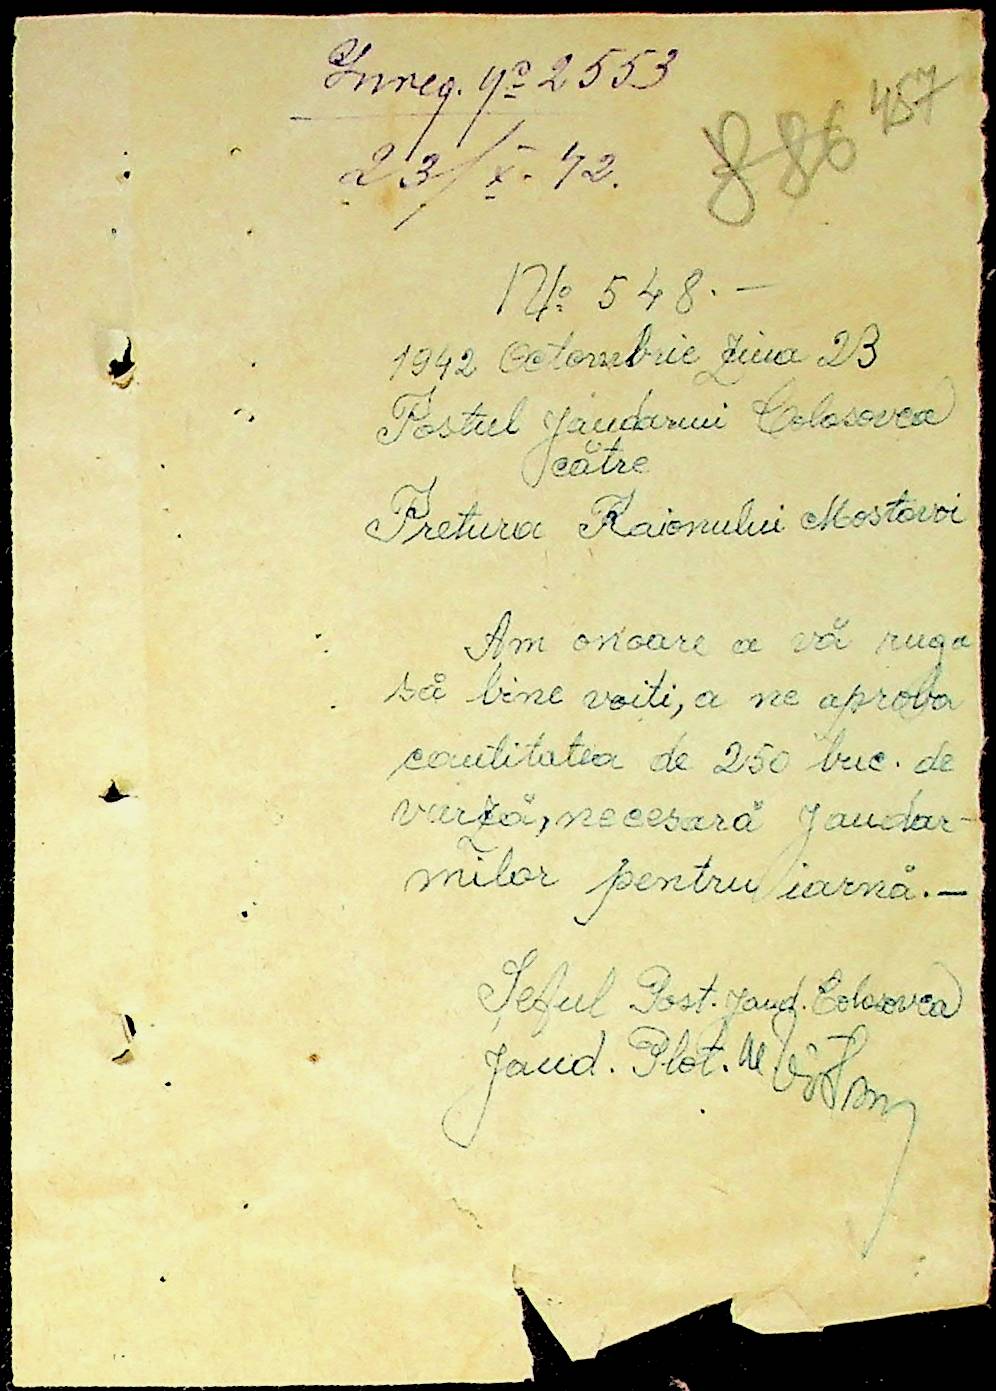 Inreg. No 2553
23/X-42.
886 457
No 548.-
1942 Octombrie Ziua 23
Postul Jandarmi Colosovca
către
Pretura Raionului Mostovoi
Am onoare a vă ruga
să bine voiti, a ne aproba
cantitatea de 250 buc. de
varză, necesară Jandar-
milor pentru iarnă.-
Șeful Post. Jand. Colosovca
Jand. Plot.